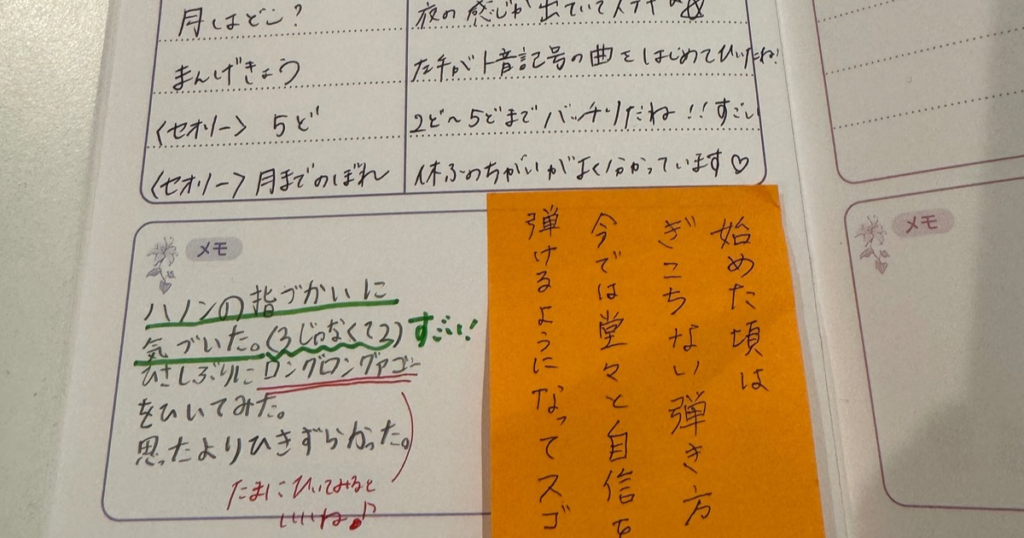 月はどこ?
夜の感じが出ていてステキ
まんげきょう
左手がト音記号の曲をはじめてひいたね!
〈セオリー〉 5ど
2ど〜5どまでバッチリだね!!すごい
〈セオリー〉月までのぼれ
休ふのちがいがよく分かっています♡
メモ
ハノンの指づかいに
気づいた。(3じゃなくて2)すごい!
ひさしぶりにロングロングアゴー
をひいてみた。
思ったよりひきずらかった。
たまにひいてみると
いいね♪
始めた頃は
ぎこちない弾き方
今では堂々と自信を
弾けるようになってスゴ
メモ